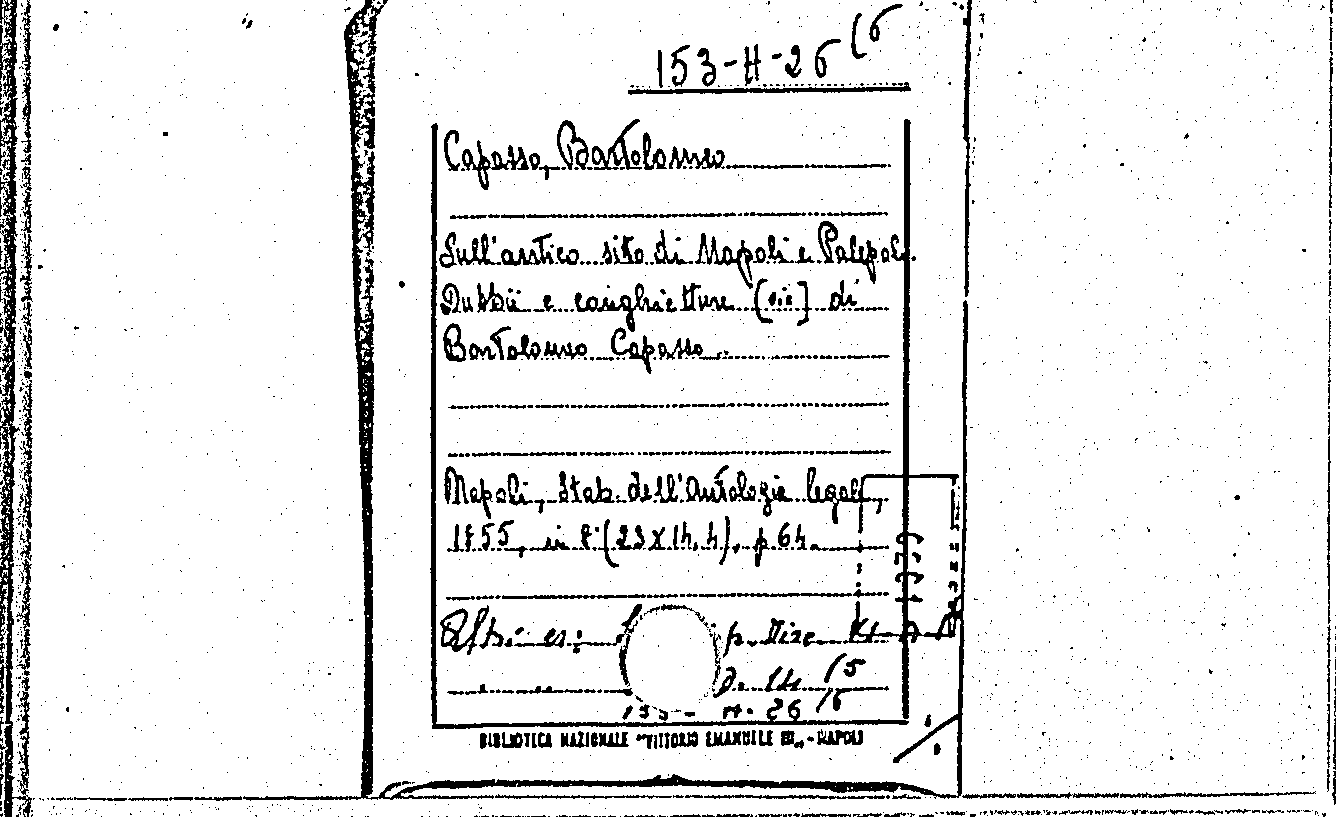 153-H-26 (6
Capasso, Bartolomeo
Sull'antico sito di Napoli e Palepoli.
Dubbii e conghietture [sic] di
Bartolomeo Capasso.
Napoli, Stab. dell'Antologia legale,
1855, in 8°(23x14,4), p 64.
Altri es:
14 (5
153- H- 26 (6
BIBLIOTECA NAZIONALE "VITTORIO EMANUELE III„ - NAPOLI